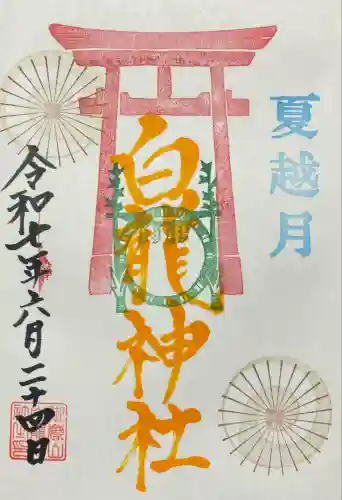 夏越月
白龍神社
令和七年六月二十四日